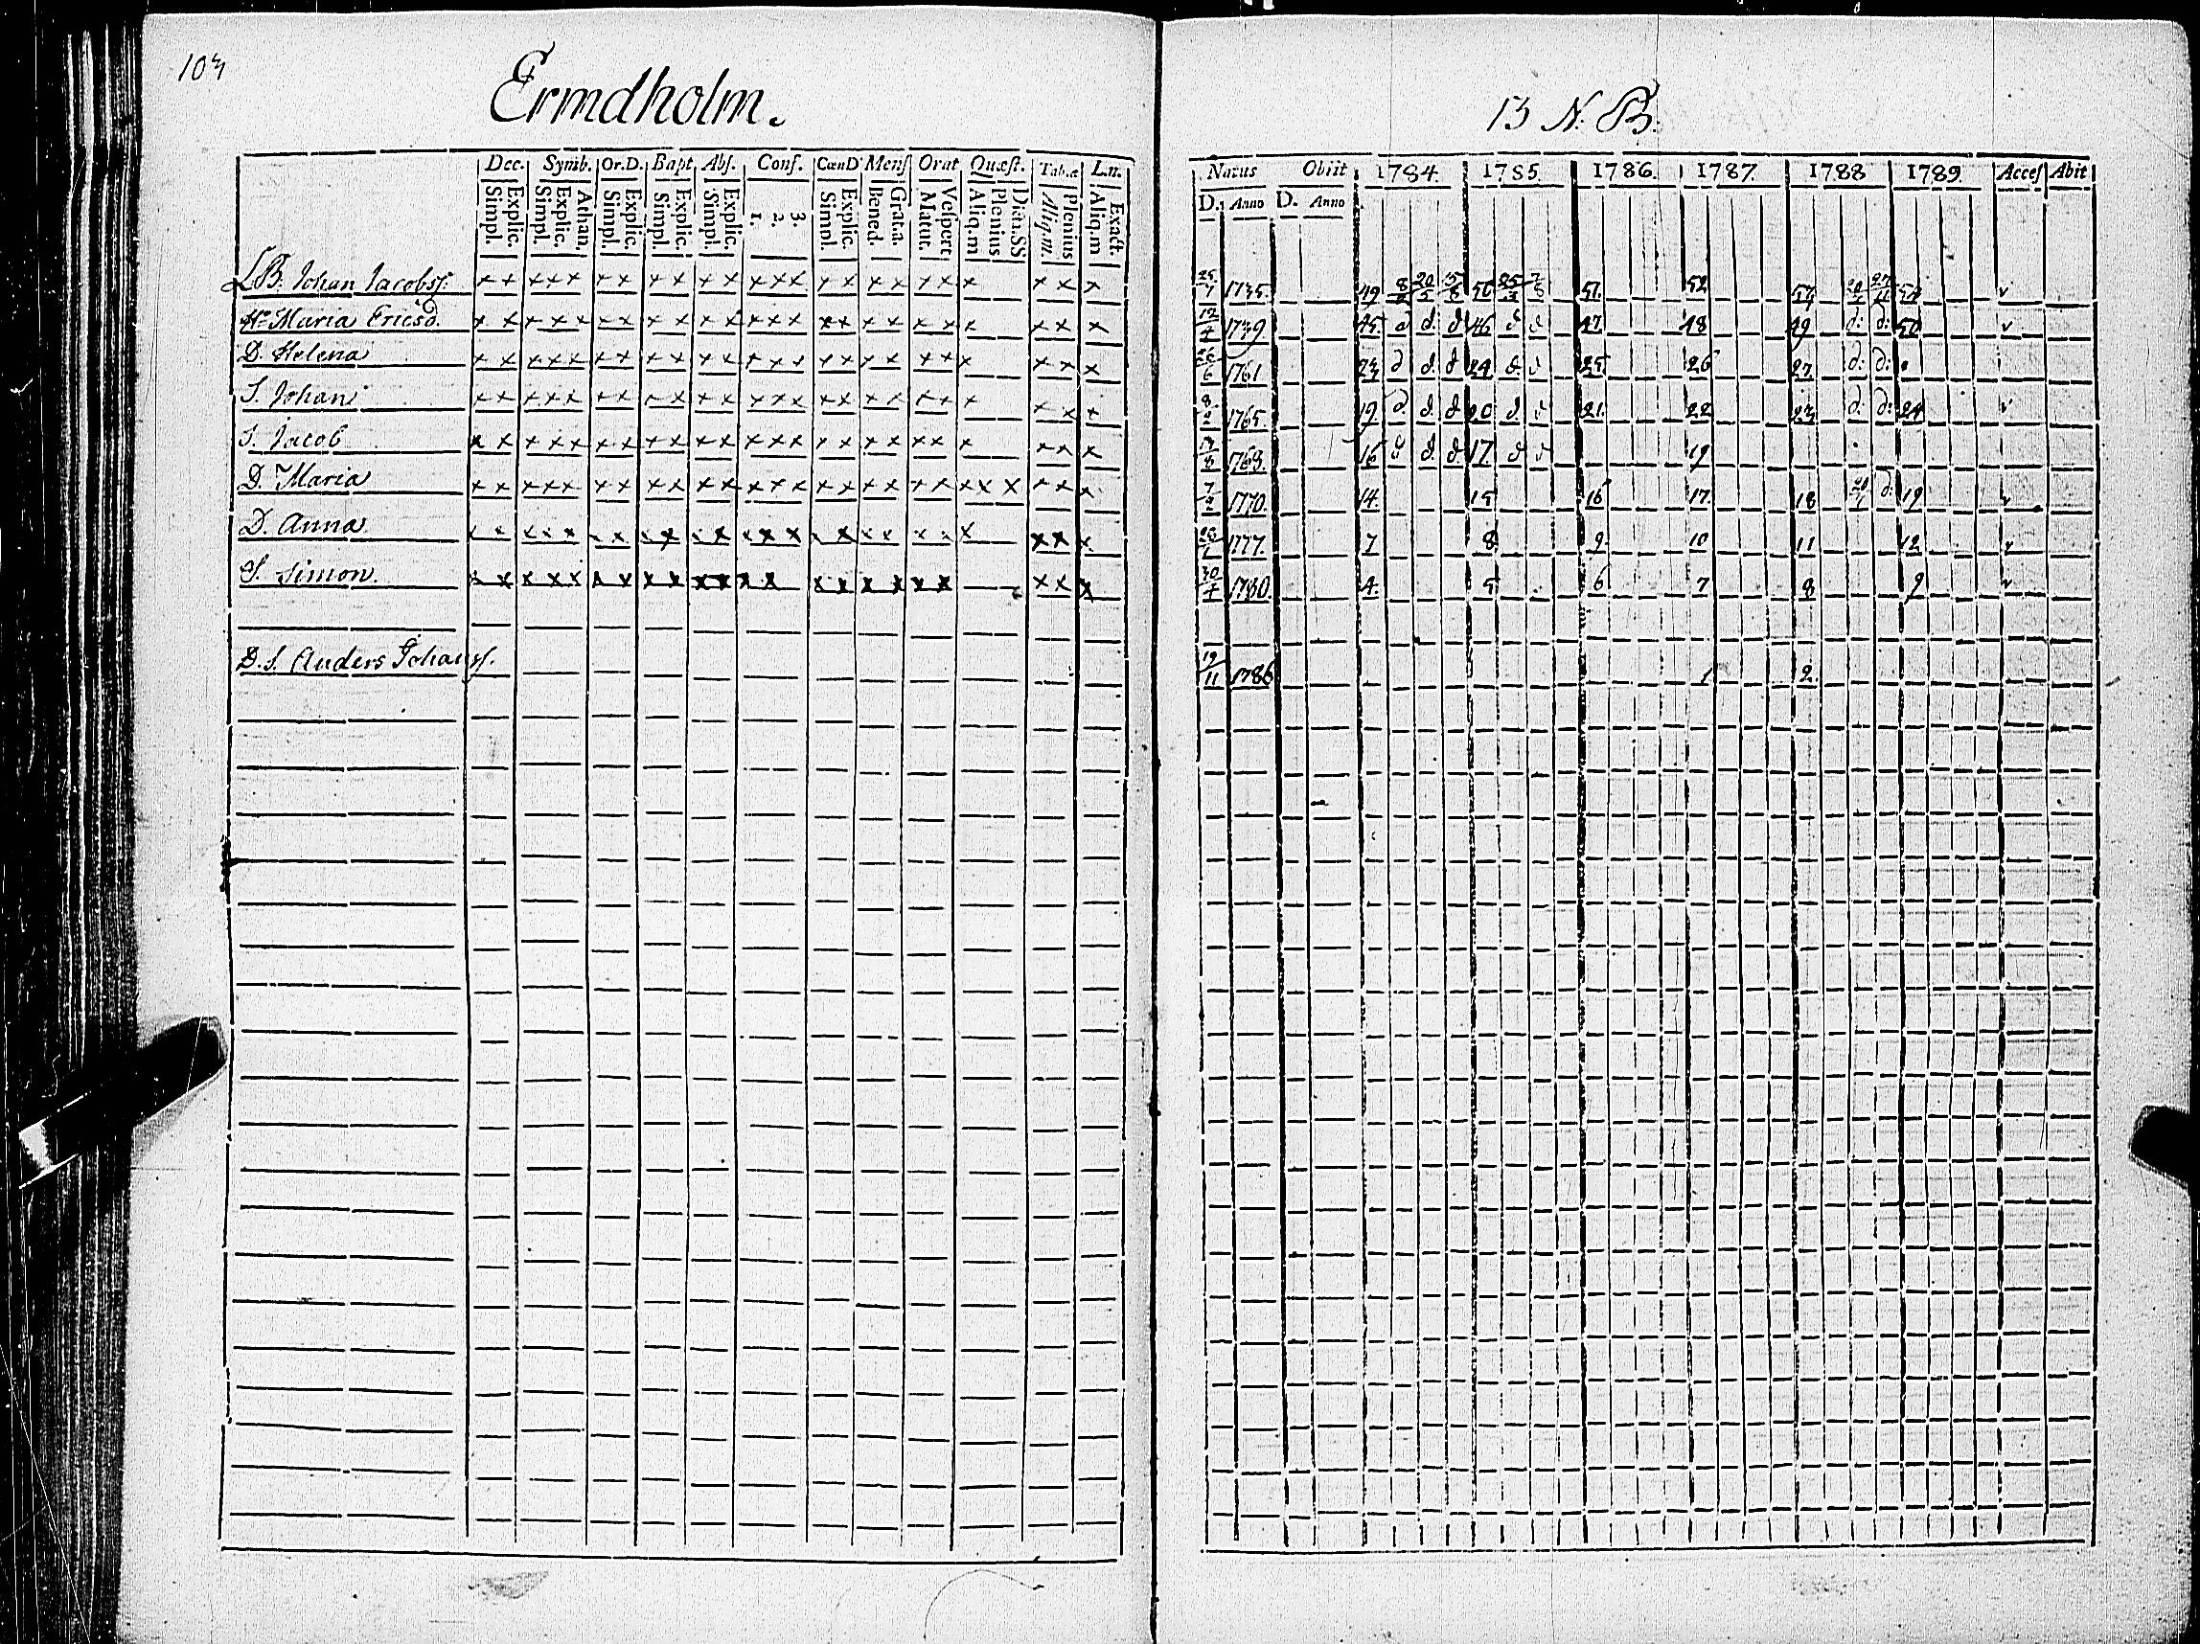 103
Ermdholm.
13 N. B.
Dec. Symb. Or.D. Bapt Abs. Conf. CœnD Mens Orat Quæst. Tab.æ L.n.
Explic. Simpl. Athan. Explic. Simpl. Explic. Simpl. Explic. Simpl. Explic. Simpl. 3. 2. 1. Explic. Simpl. Grat.a. Bened. Vespert Matut. Dict.SS Plenius Aliq.m Plenius Aliq.m. Exact. Aliq.m
Natus Obiit 1784. 1785. 1786. 1787. 1788 1789. Acces Abit
D. Anno D. Anno
LB. Johan Jacobss. x x x x x x x x x x x x x x x x x x x x x x x 25/1 1735. 49 8/2 20/5 50 51. 52
Hu Maria Ericsd. x x x x x x x x x x x x x x x x x x x x x x x 1739. 45 d d. d 46 d d 47. 48 49 d: d: 50 v
D. Helena x x x x x x x x x x x x x x x x x x x x x x x 26/6 1761. 23 d d. d 24 d. d 25. 26 27 d: d:
S. Johan x x x x x x x x x x x x x x x x x x x x x x x 1765. 19 d. d. d 20 d. d 21. 22 23 d: d: 24 v
S. Jacob x x x x x x x x x x x x x x x x x x x x x x x 1768. 16 d d. d 17. d d 19
D. Maria x x x x x x x x x x x x x x x x x x x x x x x x x 7/2 1770. 14. 15 16 17. 18 d: 19 v
D. Anna x x x x x x x x x x x x x x x x x x x x x x x 1777. 7 8 9 10 11 12 v
S. Simon. x x x x x x x x x x x x x x x x x x x x x 30/4 1780. 4. 5 6 7 8 9 v
D.S. Anders Johanss. 19/11 1786 1 2